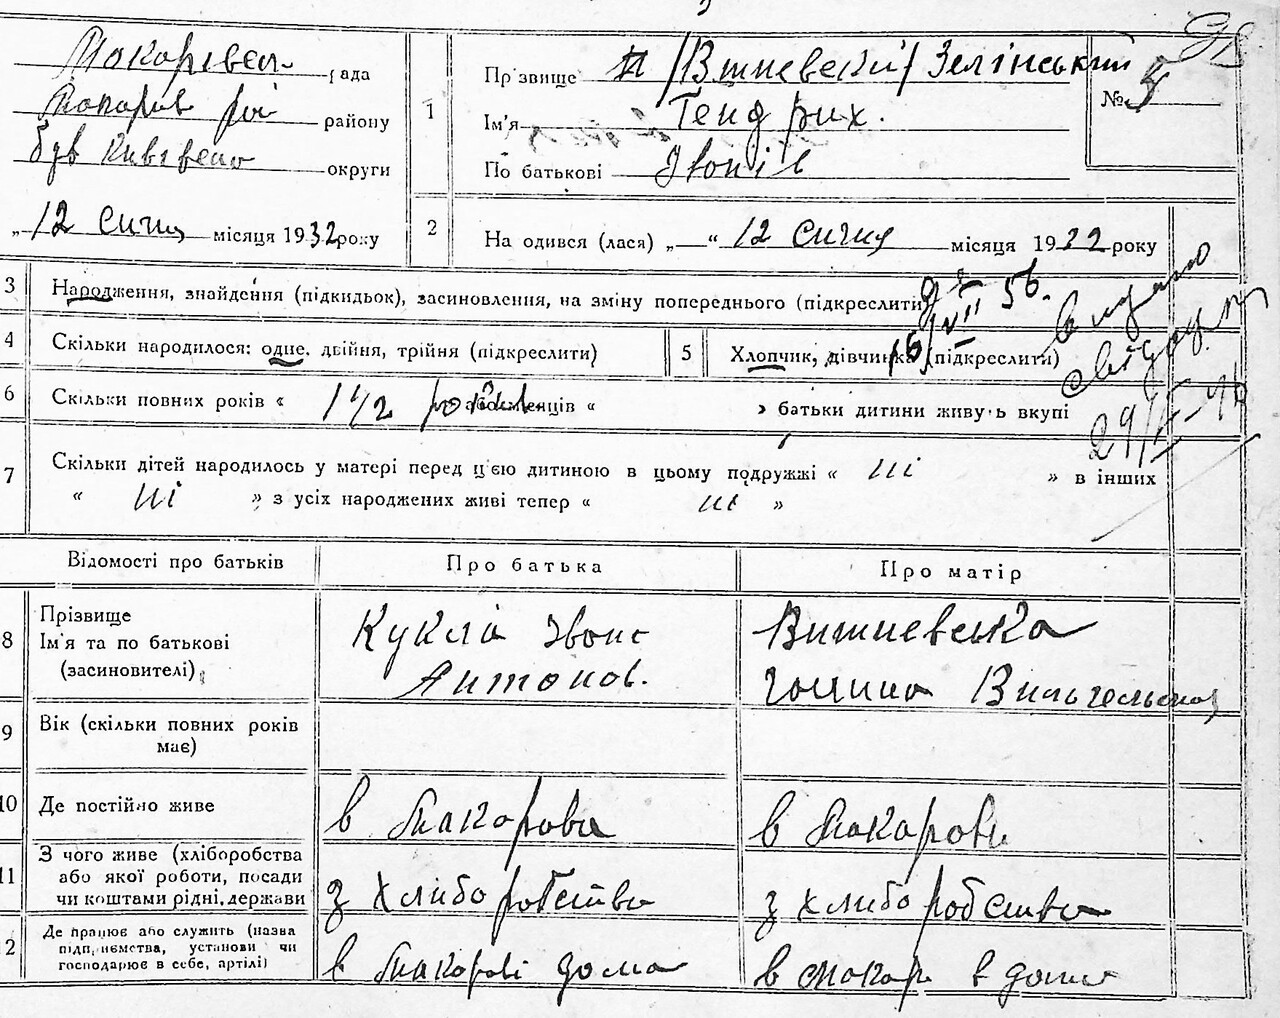 Макарівсл- рада
Макарів рой району
був Київсько округи
„12 Січня місяця 1932 року
1
Прізвище /Вишневський/ Зелінський
Ім'я Гендрих.
По батькові Івонів
№ 5
2
На одився (лася) „ “ 12 Січня місяця 1932 року
3 Народження, знайдення (підкидьок), засиновлення, на зміну попереднього (підкреслити)
4 Скільки народилося: одне, двійня, трійня (підкреслити)
5 Хлопчик, дівчинка (підкреслити)
16/VII 56.
видано
свідоц
6 Скільки повних років « 1 1/2 років « › батьки дитини живуть вкупі
7 Скільки дітей народилось у матері перед цією дитиною в цьому подружжі « ні » в інших
« ні » з усіх народжених живі тепер « ні »
Відомості про батьків Про батька Про матір
8 Прізвище
Ім'я та по батькові
(засиновителі)
Кукла Івонс
Антонов.
Вишневська
Галина Вильгельмов
9 Вік (скільки повних років
має)
10 Де постійно живе в Макарови в Макарови
11 З чого живе (хліборобства
або якої роботи, посади
чи коштами рідні, держави
з хлиборобства з хлиборобства
12 Де працює або служить (назва
підприємства, установи чи
господарює в себе, артілі)
в Макарові дома в Макар в дома